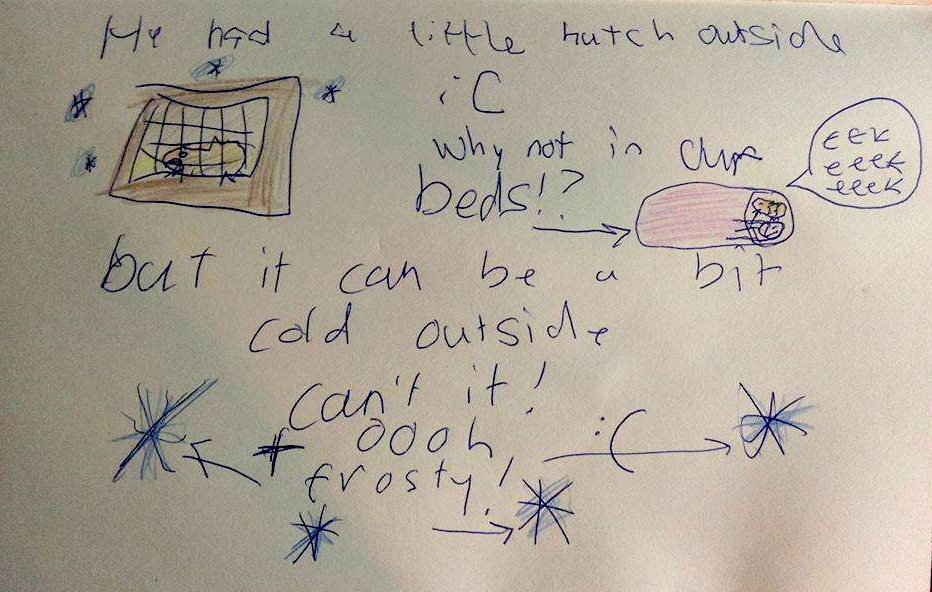 He had a little hutch outside
:C
Why not in our
beds!?
eek
eeek
eeek
but it can be a bit
cold outside
can't it!
oooh
frosty!
:(